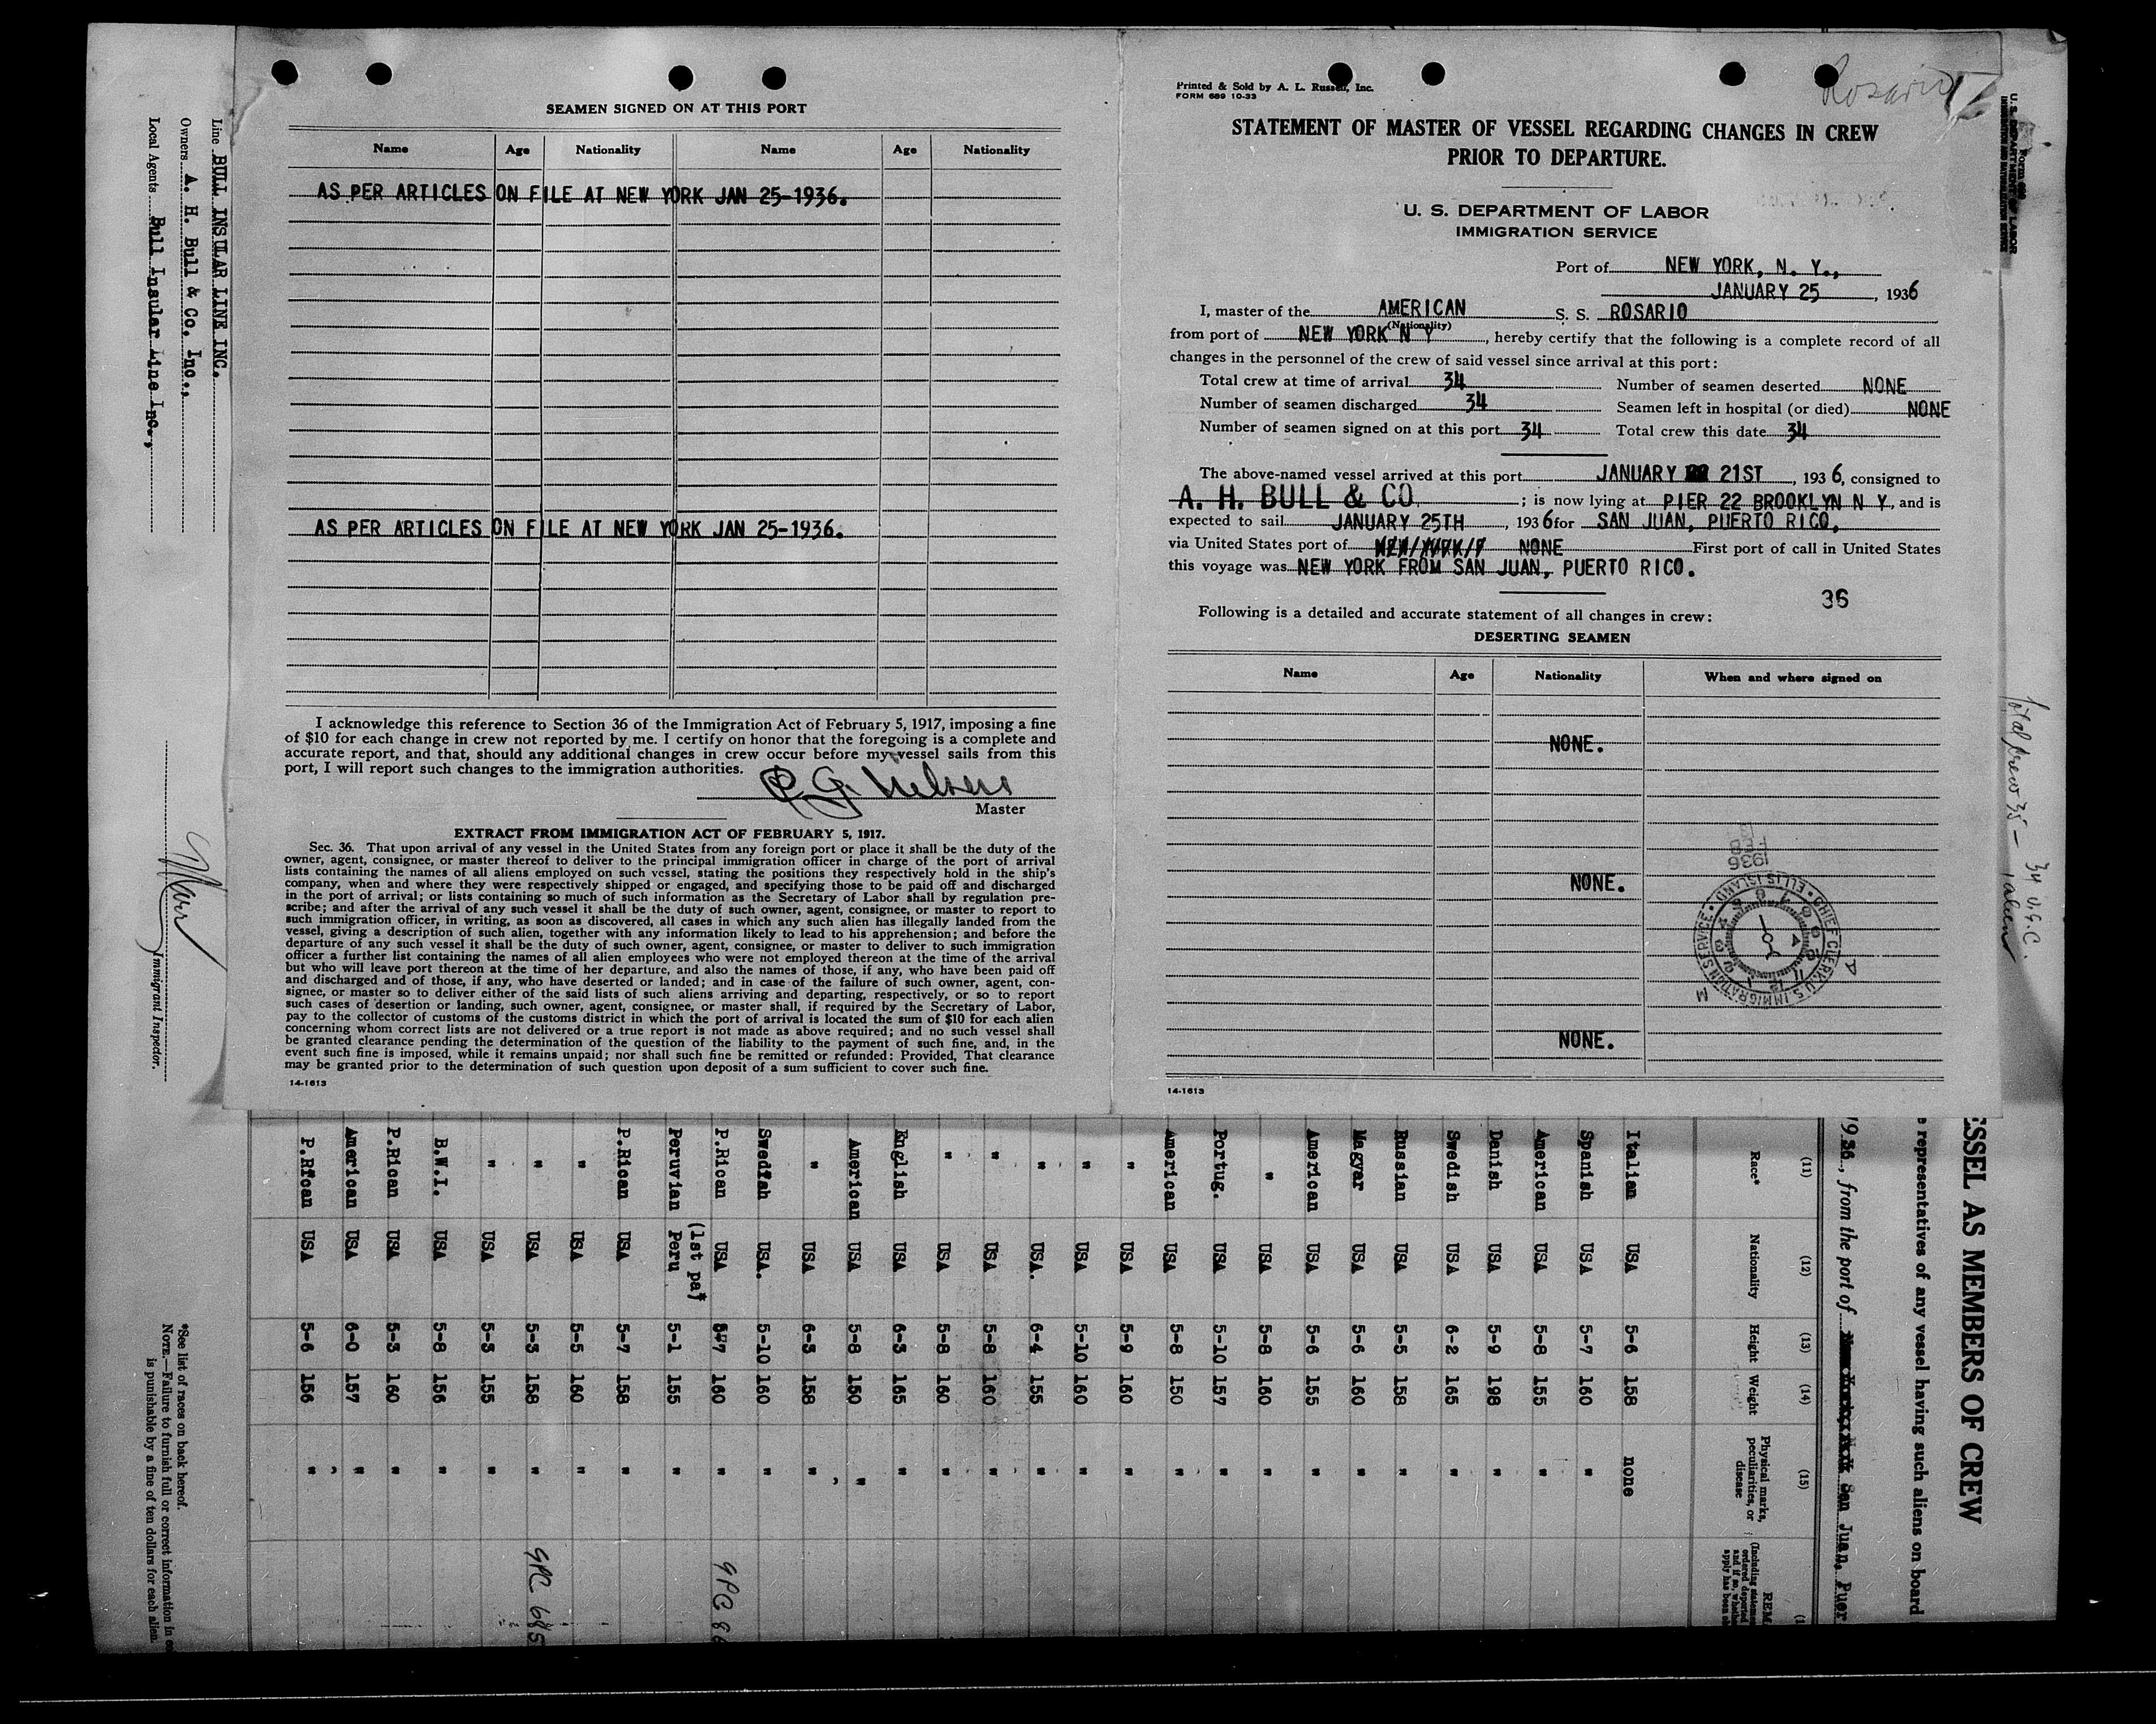 SEAMEN SIGNED ON AT THIS PORT
Name Age Nationality Name Age Nationality
AS PER ARTICLES ON FILE AT NEW YORK JAN 25-1936.
AS PER ARTICLES ON FILE AT NEW YORK JAN 25-1936.
I acknowledge this reference to Section 36 of the Immigration Act of February 5, 1917, imposing a fine
of $10 for each change in crew not reported by me. I certify on honor that the foregoing is a complete and
accurate report, and that, should any additional changes in crew occur before my vessel sails from this
port, I will report such changes to the immigration authorities.
Master
EXTRACT FROM IMMIGRATION ACT OF FEBRUARY 5, 1917.
Sec. 36. That upon arrival of any vessel in the United States from any foreign port or place it shall be the duty of the
owner, agent, consignee, or master thereof to deliver to the principal immigration officer in charge of the port of arrival
lists containing the names of all aliens employed on such vessel, stating the positions they respectively hold in the ship's
company, when and where they were respectively shipped or engaged, and specifying those to be paid off and discharged
in the port of arrival; or lists containing so much of such information as the Secretary of Labor shall by regulation pre-
scribe; and after the arrival of any such vessel it shall be the duty of such owner, agent, consignee, or master to report to
such immigration officer, in writing, as soon as discovered, all cases in which any such alien has illegally landed from the
vessel, giving a description of such alien, together with any information likely to lead to his apprehension; and before the
departure of any such vessel it shall be the duty of such owner, agent, consignee, or master to deliver to such immigration
officer a further list containing the names of all alien employees who were not employed thereon at the time of the arrival
but who will leave port thereon at the time of her departure, and also the names of those, if any, who have been paid off
and discharged and of those, if any, who have deserted or landed; and in case of the failure of such owner, agent, con-
signee, or master so to deliver either of the said lists of such aliens arriving and departing, respectively, or so to report
such cases of desertion or landing, such owner, agent, consignee, or master shall, if required by the Secretary of Labor,
pay to the collector of customs of the customs district in which the port of arrival is located the sum of $10 for each alien
concerning whom correct lists are not delivered or a true report is not made as above required; and no such vessel shall
be granted clearance pending the determination of the question of the liability to the payment of such fine, and, in the
event such fine is imposed, while it remains unpaid; nor shall such fine be remitted or refunded: Provided, That clearance
may be granted prior to the determination of such question upon deposit of a sum sufficient to cover such fine.
14-1613
Printed & Sold by A. L. Russell, Inc.
FORM 689 10-33
Rosario
STATEMENT OF MASTER OF VESSEL REGARDING CHANGES IN CREW
PRIOR TO DEPARTURE.
U. S. DEPARTMENT OF LABOR
IMMIGRATION SERVICE
Port of NEW YORK, N. Y.,
JANUARY 25, 1936
I, master of the AMERICAN S. S. ROSARIO
(Nationality)
from port of NEW YORK N Y, hereby certify that the following is a complete record of all
changes in the personnel of the crew of said vessel since arrival at this port:
Total crew at time of arrival 34 Number of seamen deserted NONE
Number of seamen discharged 34 Seamen left in hospital (or died) NONE
Number of seamen signed on at this port 34 Total crew this date 34
The above-named vessel arrived at this port JANUARY 21ST, 1936, consigned to
A. H. BULL & CO; is now lying at PIER 22 BROOKLYN N Y, and is
expected to sail JANUARY 25TH, 1936 for SAN JUAN, PUERTO RICO.
via United States port of NONE First port of call in United States
this voyage was NEW YORK FROM SAN JUAN, PUERTO RICO.
36
Following is a detailed and accurate statement of all changes in crew:
DESERTING SEAMEN
Name Age Nationality When and where signed on
NONE.
NONE.
NONE.
14-1613
1936
FEB
CHIEF CLERK U.S. IMMIGRATION SERVICE • ELLIS ISLAND •
U. S. DEPARTMENT OF LABOR
34 U.S.C.
1 alien
Line BULL INSULAR LINE INC.
Owners A. H. Bull & Co. Inc.,
Local Agents Bull Insular Line Inc.,
Immigrant Inspector.
ESSEL AS MEMBERS OF CREW
representatives of any vessel having such aliens on board
1936, from the port of San Juan, Puer
(11) (12) (13) (14) (15)
Race* Nationality Height Weight Physical marks, peculiarities, or disease REM
Italian USA 5-6 158 none
Spanish USA 5-7 160 "
American USA 5-8 155 "
Danish USA 5-9 198 "
Swedish USA 6-2 165 "
Russian USA 5-5 158 "
Magyar USA 5-6 160 "
American USA 5-6 155 "
" USA 5-8 160 "
Portug. USA 5-10 157 "
American USA 5-8 150 "
" USA 5-9 160 "
" USA 5-10 160 "
" USA. 6-4 155 "
" USA 5-8 160 "
" USA 5-8 160 "
English USA 6-3 165 "
American USA 5-8 150 "
" USA 6-3 158 "
Swedish USA. 5-10 160 "
P.Rican USA 5-7 160 "
(1st pa)
Peruvian Peru 5-1 155 "
P.Rican USA 5-7 158 "
" USA 5-5 160 "
" USA 5-3 158 "
" USA 5-3 155 "
B.W.I. USA 5-8 156 "
P.Rican USA 5-3 160 "
American USA 6-0 157 "
P.Rican USA 5-6 156 "
*See list of races on back hereof.
NOTE.—Failure to furnish full or correct information in
is punishable by a fine of ten dollars for each alien.